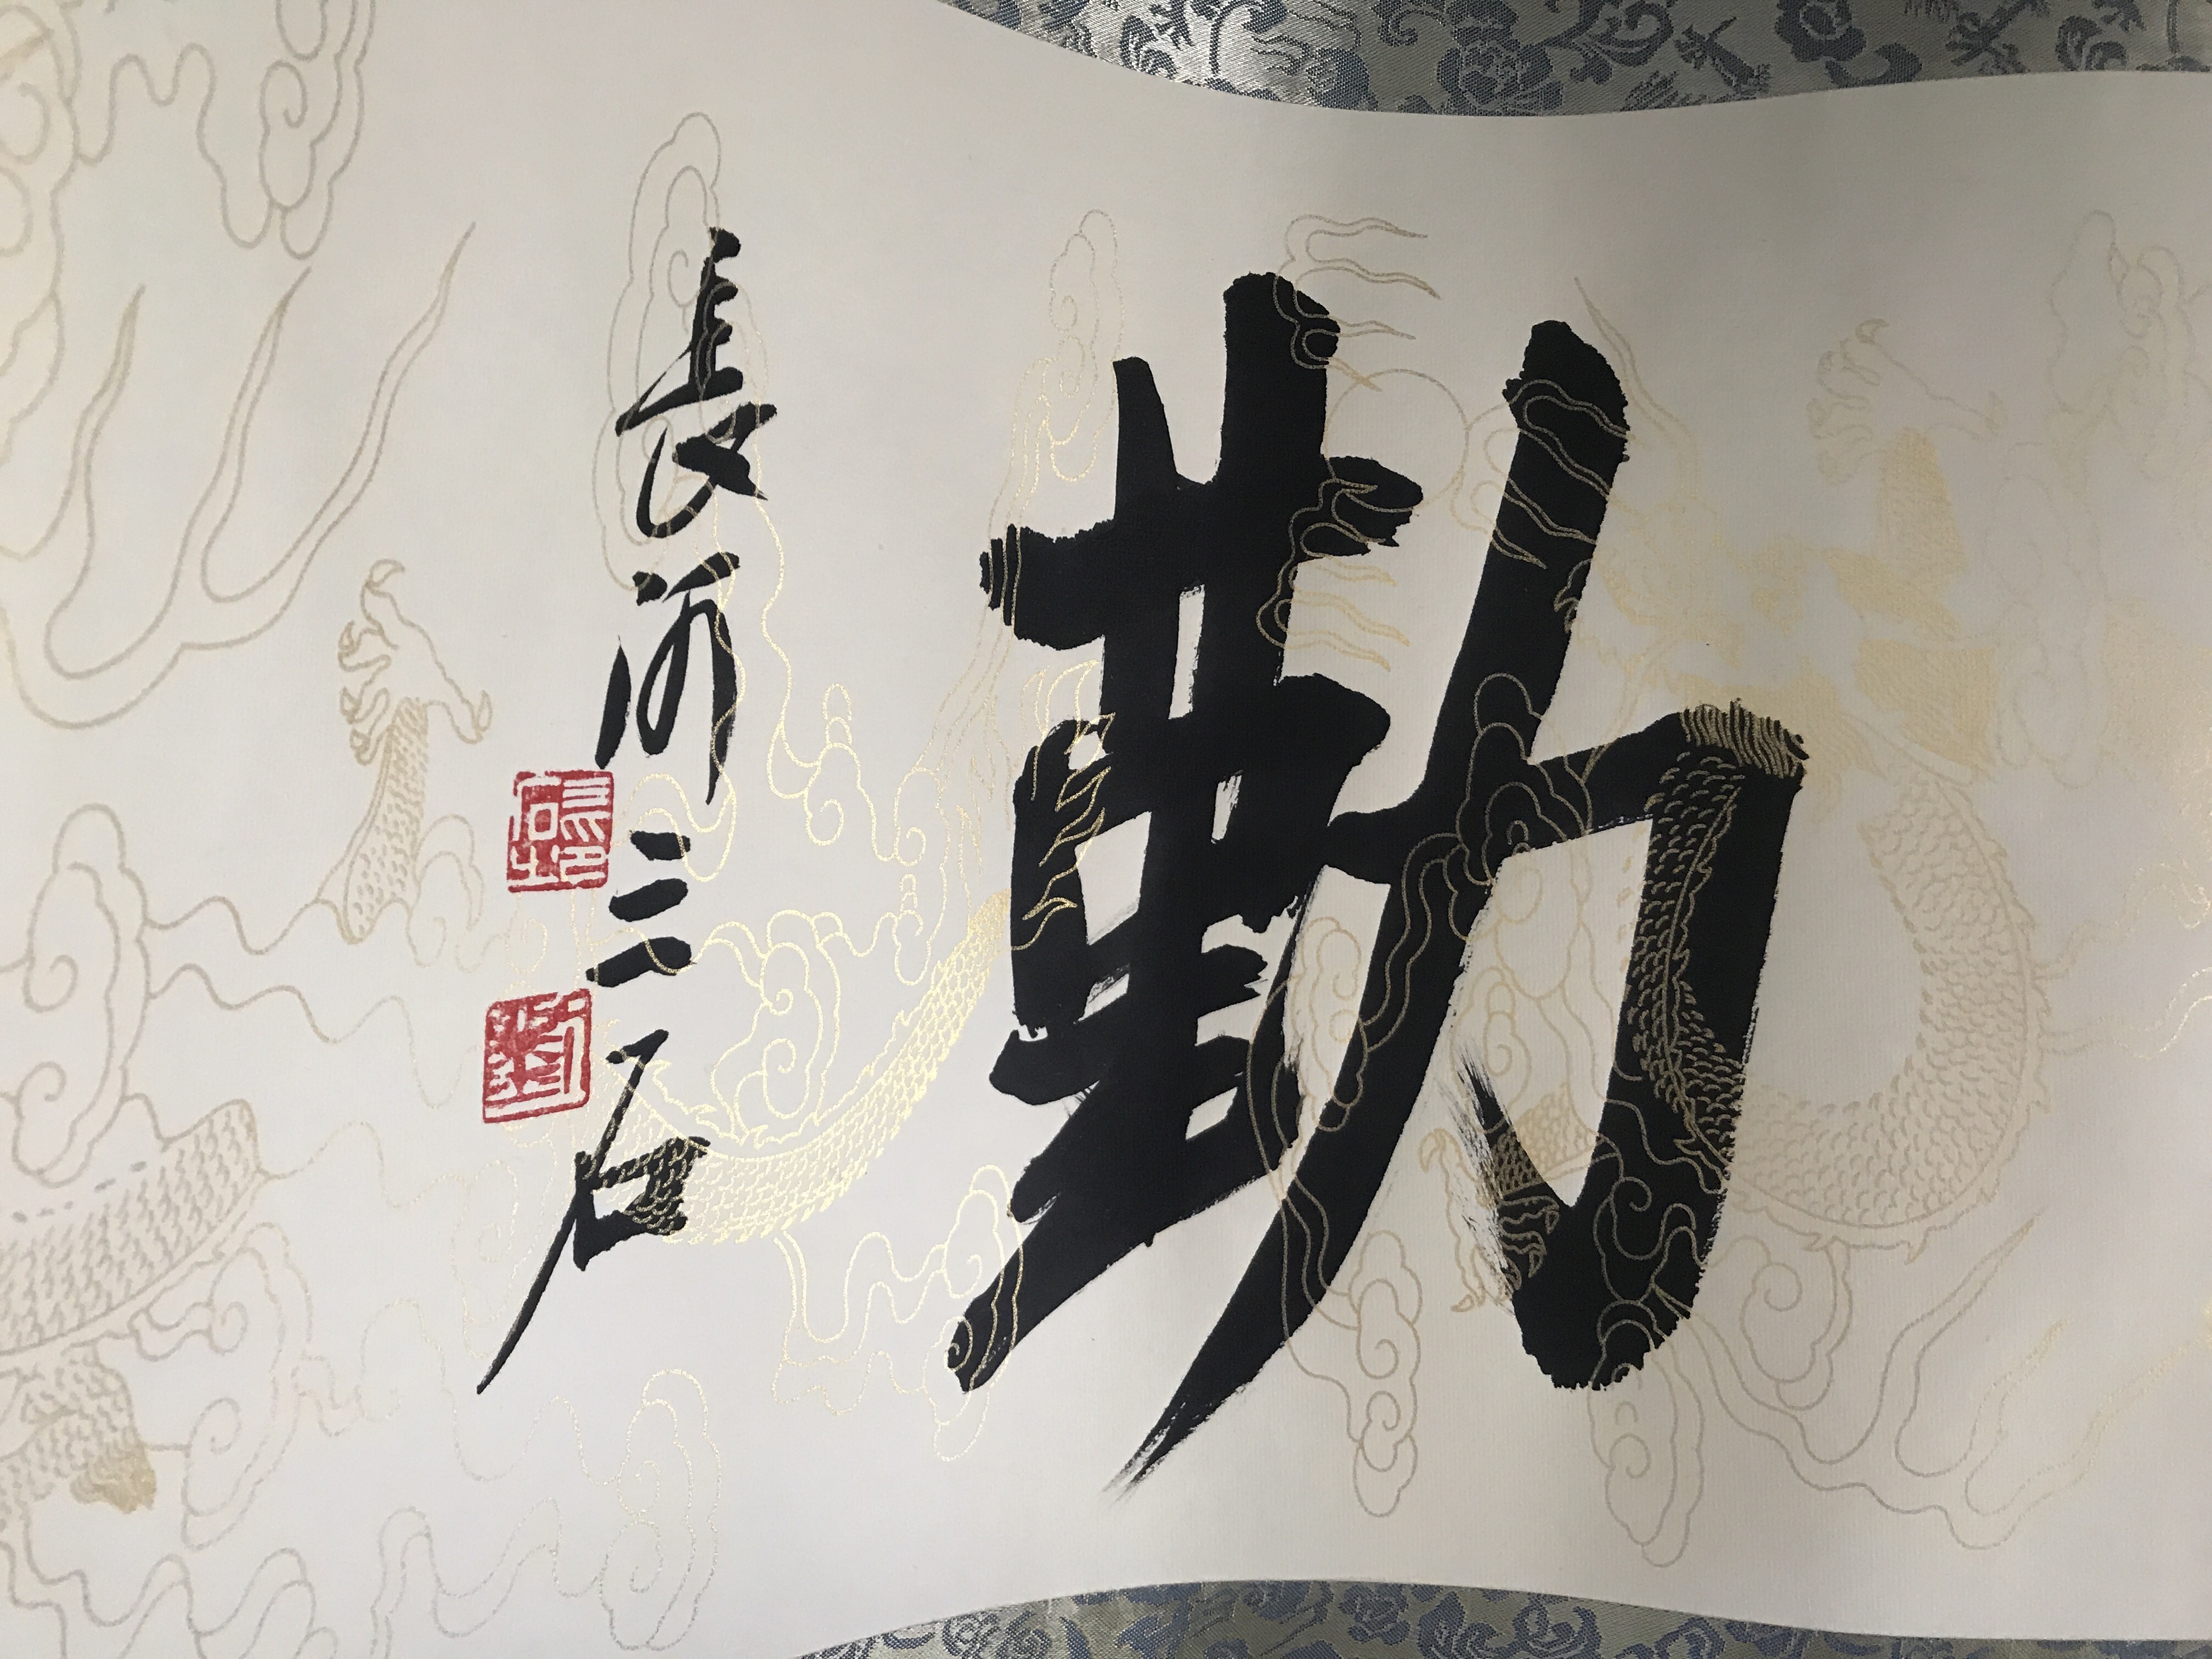 勤
長河三石